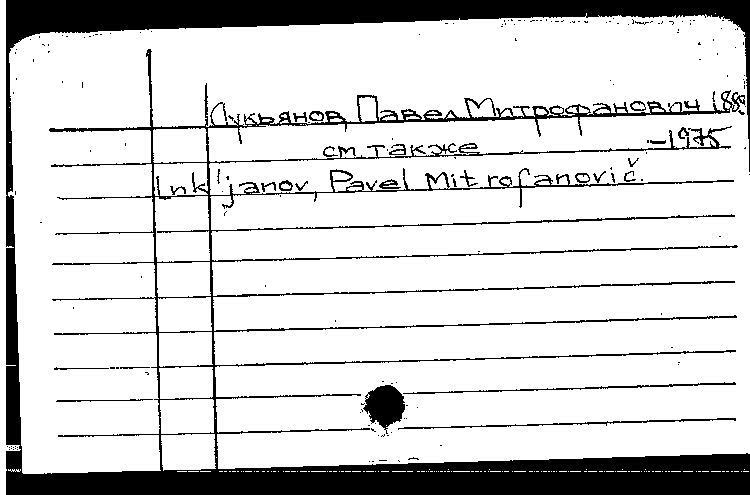 Лукьянов, Павел Митрофанович 1889
-1975
см. также
Luk'janov, Pavel Mitrofanovič.